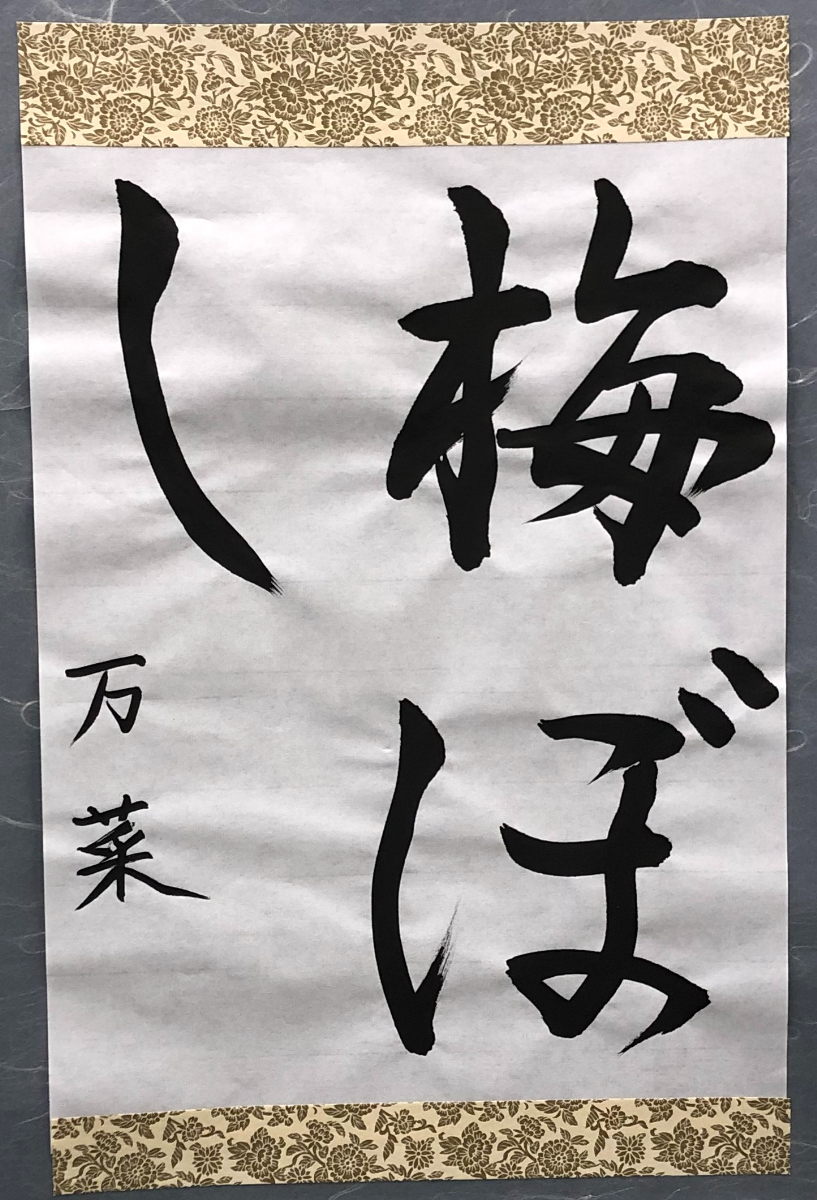 梅ぼ
し
万菜